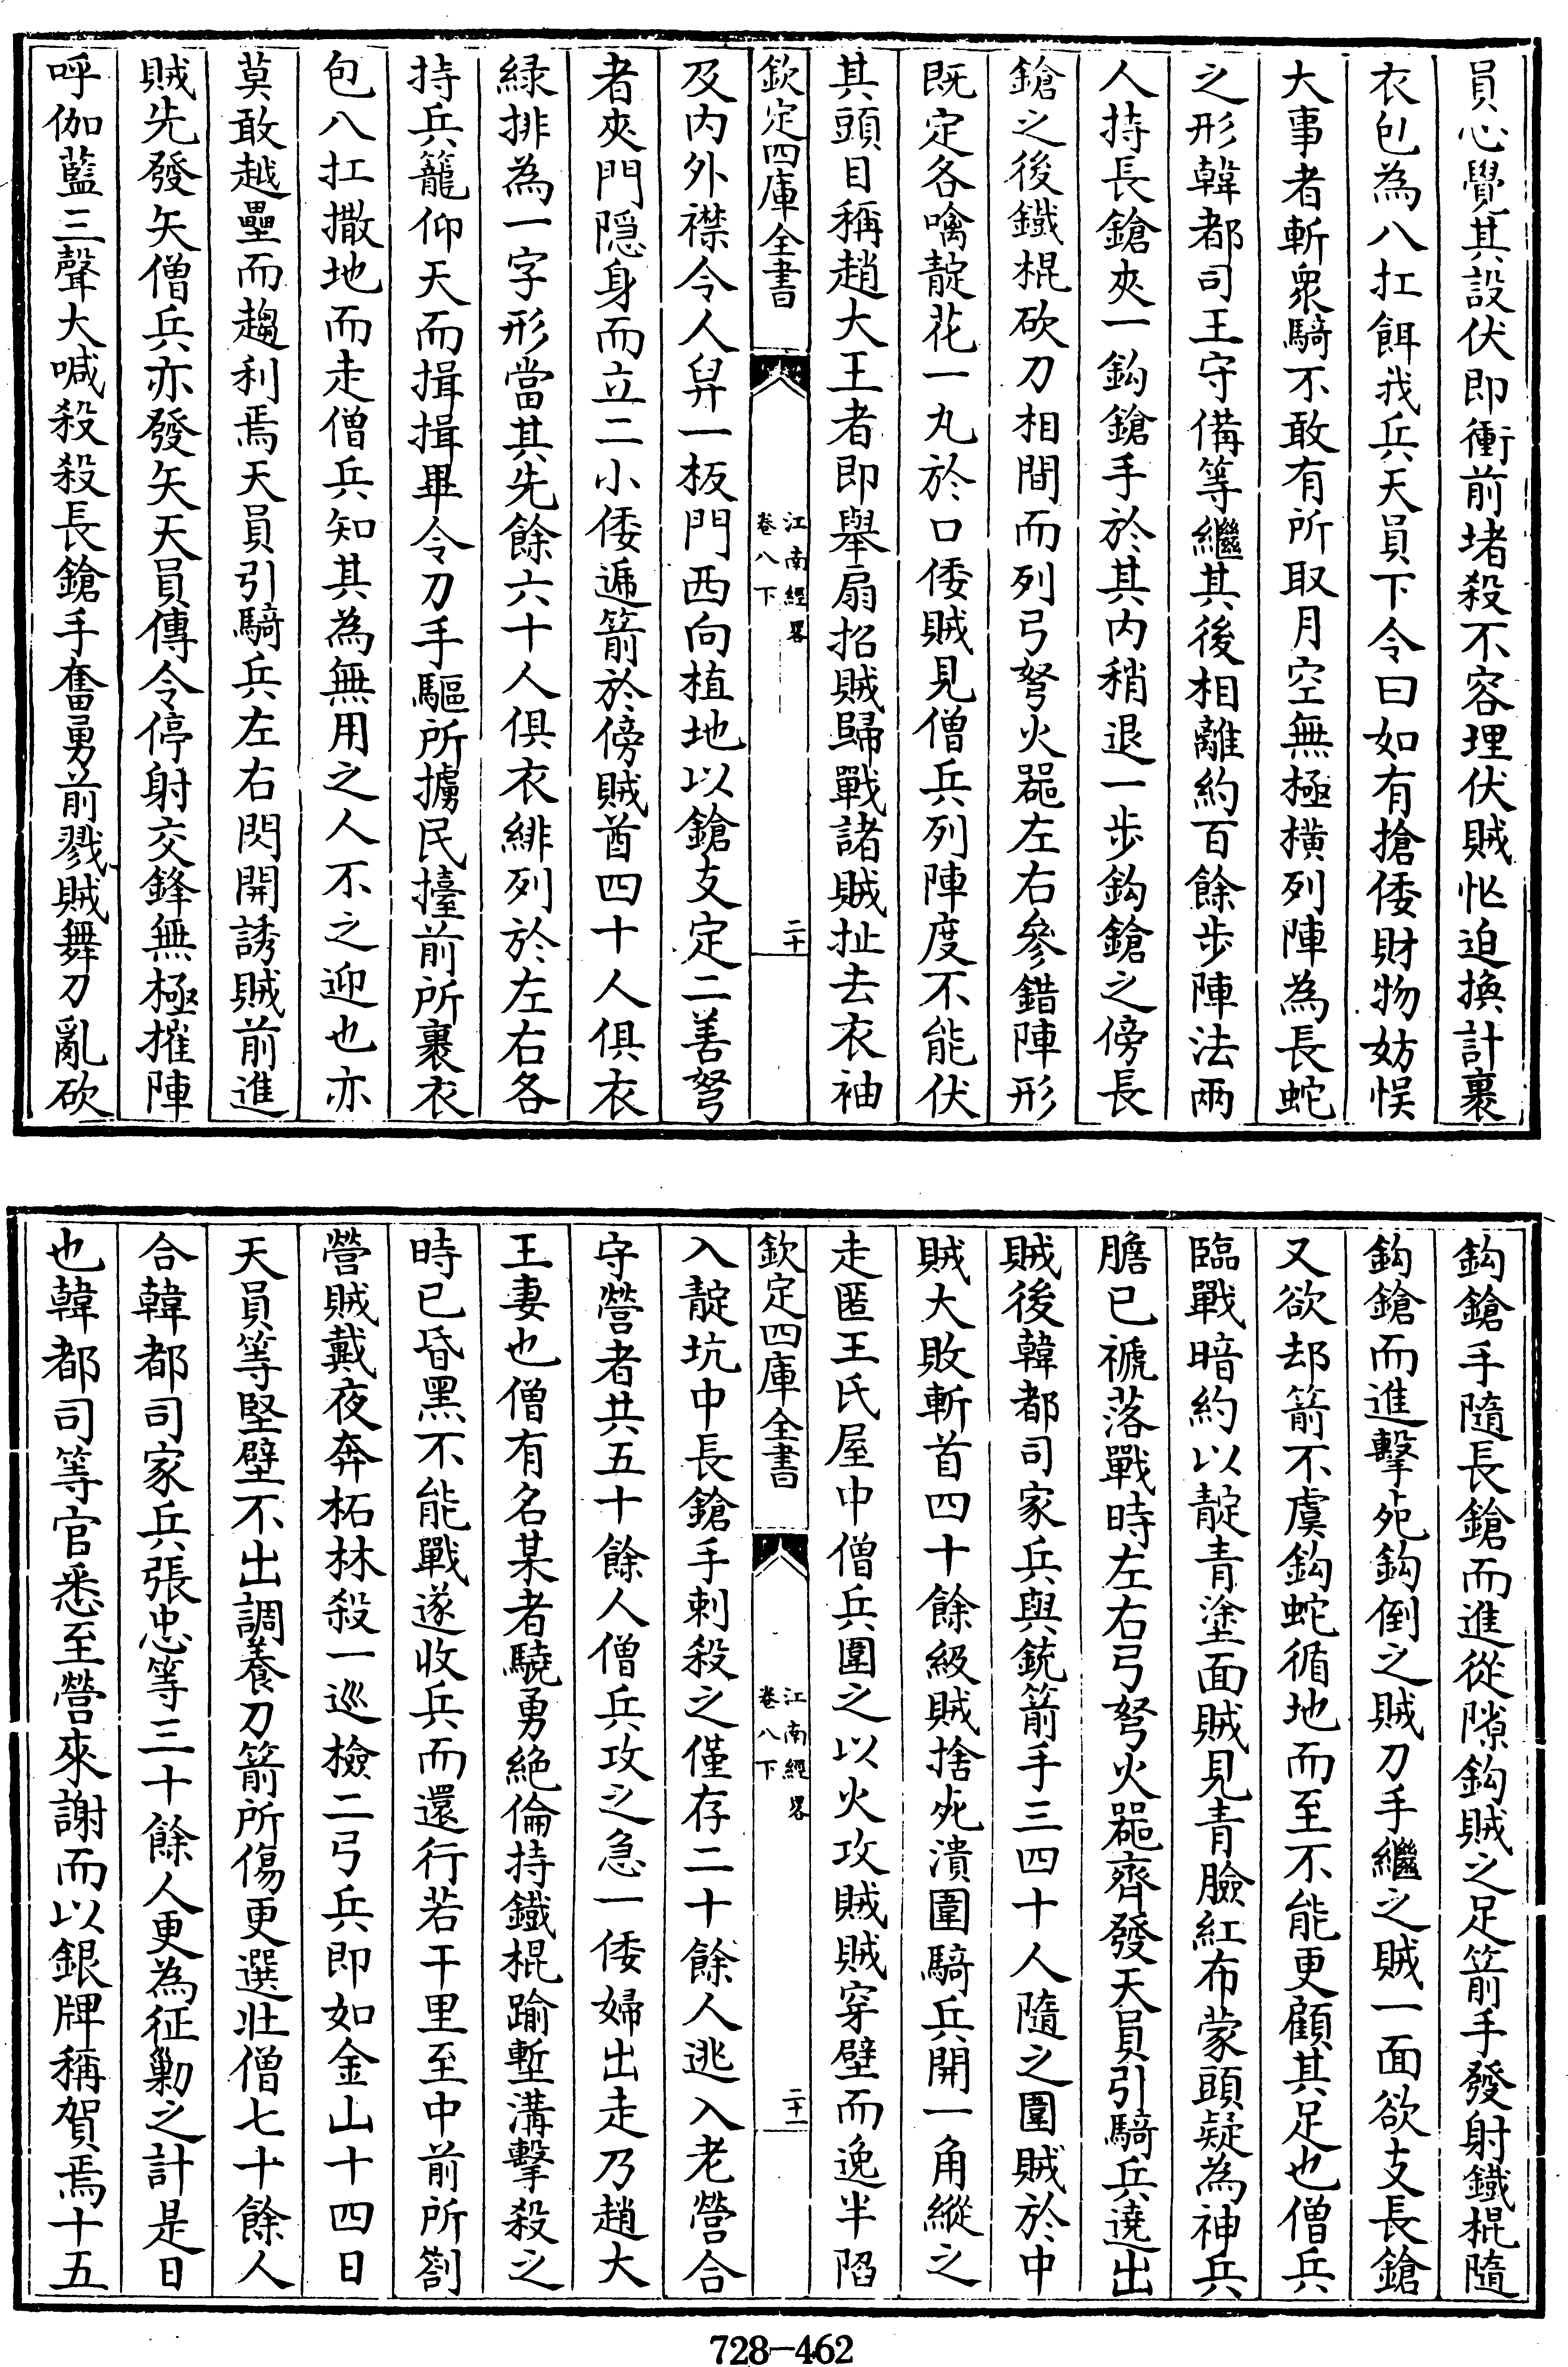 員心覺其設伏即衝前堵殺不容埋伏賊忙迫換計裹
衣包為八扛餌我兵天員下令曰如有搶倭財物妨悞
大事者斬衆騎不敢有所取月空無極橫列陣為長蛇
之形韓都司王守備等繼其後相離約百餘步陣法兩
人持長鎗夾一鈎鎗手於其内稍退一步鈎鎗之傍長
鎗之後鐵棍砍刀相間而列弓弩火噐左右參錯陣形
既定各噙靛花一丸於口倭賊見僧兵列陣度不能伏
其頭目稱趙大王者即舉扇招賊歸戰諸賊扯去衣袖
欽定四庫全書
江南經畧
卷八下
二十
及内外襟令人舁一板門西向植地以鎗支定二善弩
者夾門隠身而立二小倭遞箭於傍賊酋四十人俱衣
緑排為一字形當其先餘六十人俱衣緋列於左右各
持兵籠仰天而揖揖畢令刀手驅所擄民擡前所裹衣
包八扛撒地而走僧兵知其為無用之人不之迎也亦
莫敢越壘而趨利焉天員引騎兵左右閃開誘賊前進
賊先發矢僧兵亦發矢天員傳令停射交鋒無極摧陣
呼伽藍三聲大喊殺殺長鎗手奮勇前戮賊舞刀亂砍
鈎鎗手隨長鎗而進從隙鈎賊之足箭手發射鐵棍隨
鈎鎗而進擊死鈎倒之賊刀手繼之賊一面欲支長鎗
又欲却箭不虞鈎蛇循地而至不能更顧其足也僧兵
臨戰暗約以靛青塗面賊見青臉紅布蒙頭疑為神兵
膽已褫落戰時左右弓弩火噐齊發天員引騎兵遶出
賊後韓都司家兵與銃箭手三四十人隨之圍賊於中
賊大敗斬首四十餘級賊捨死潰圍騎兵開一角縱之
走匿王氏屋中僧兵圍之以火攻賊賊穿壁而逸半陷
欽定四庫全書
江南經畧
卷八下
二十一
入靛坑中長鎗手刺殺之僅存二十餘人逃入老營合
守營者共五十餘人僧兵攻之急一倭婦出走乃趙大
王妻也僧有名某者驍勇絶倫持鐵棍踰塹溝擊殺之
時已昏黑不能戰遂收兵而還行若干里至中前所劄
營賊戴夜奔柘林殺一巡檢二弓兵即如金山十四日
天員等堅壁不出調養刀箭所傷更選壯僧七十餘人
合韓都司家兵張忠等三十餘人更為征勦之計是日
也韓都司等官悉至營來謝而以銀牌稱賀焉十五
728-462